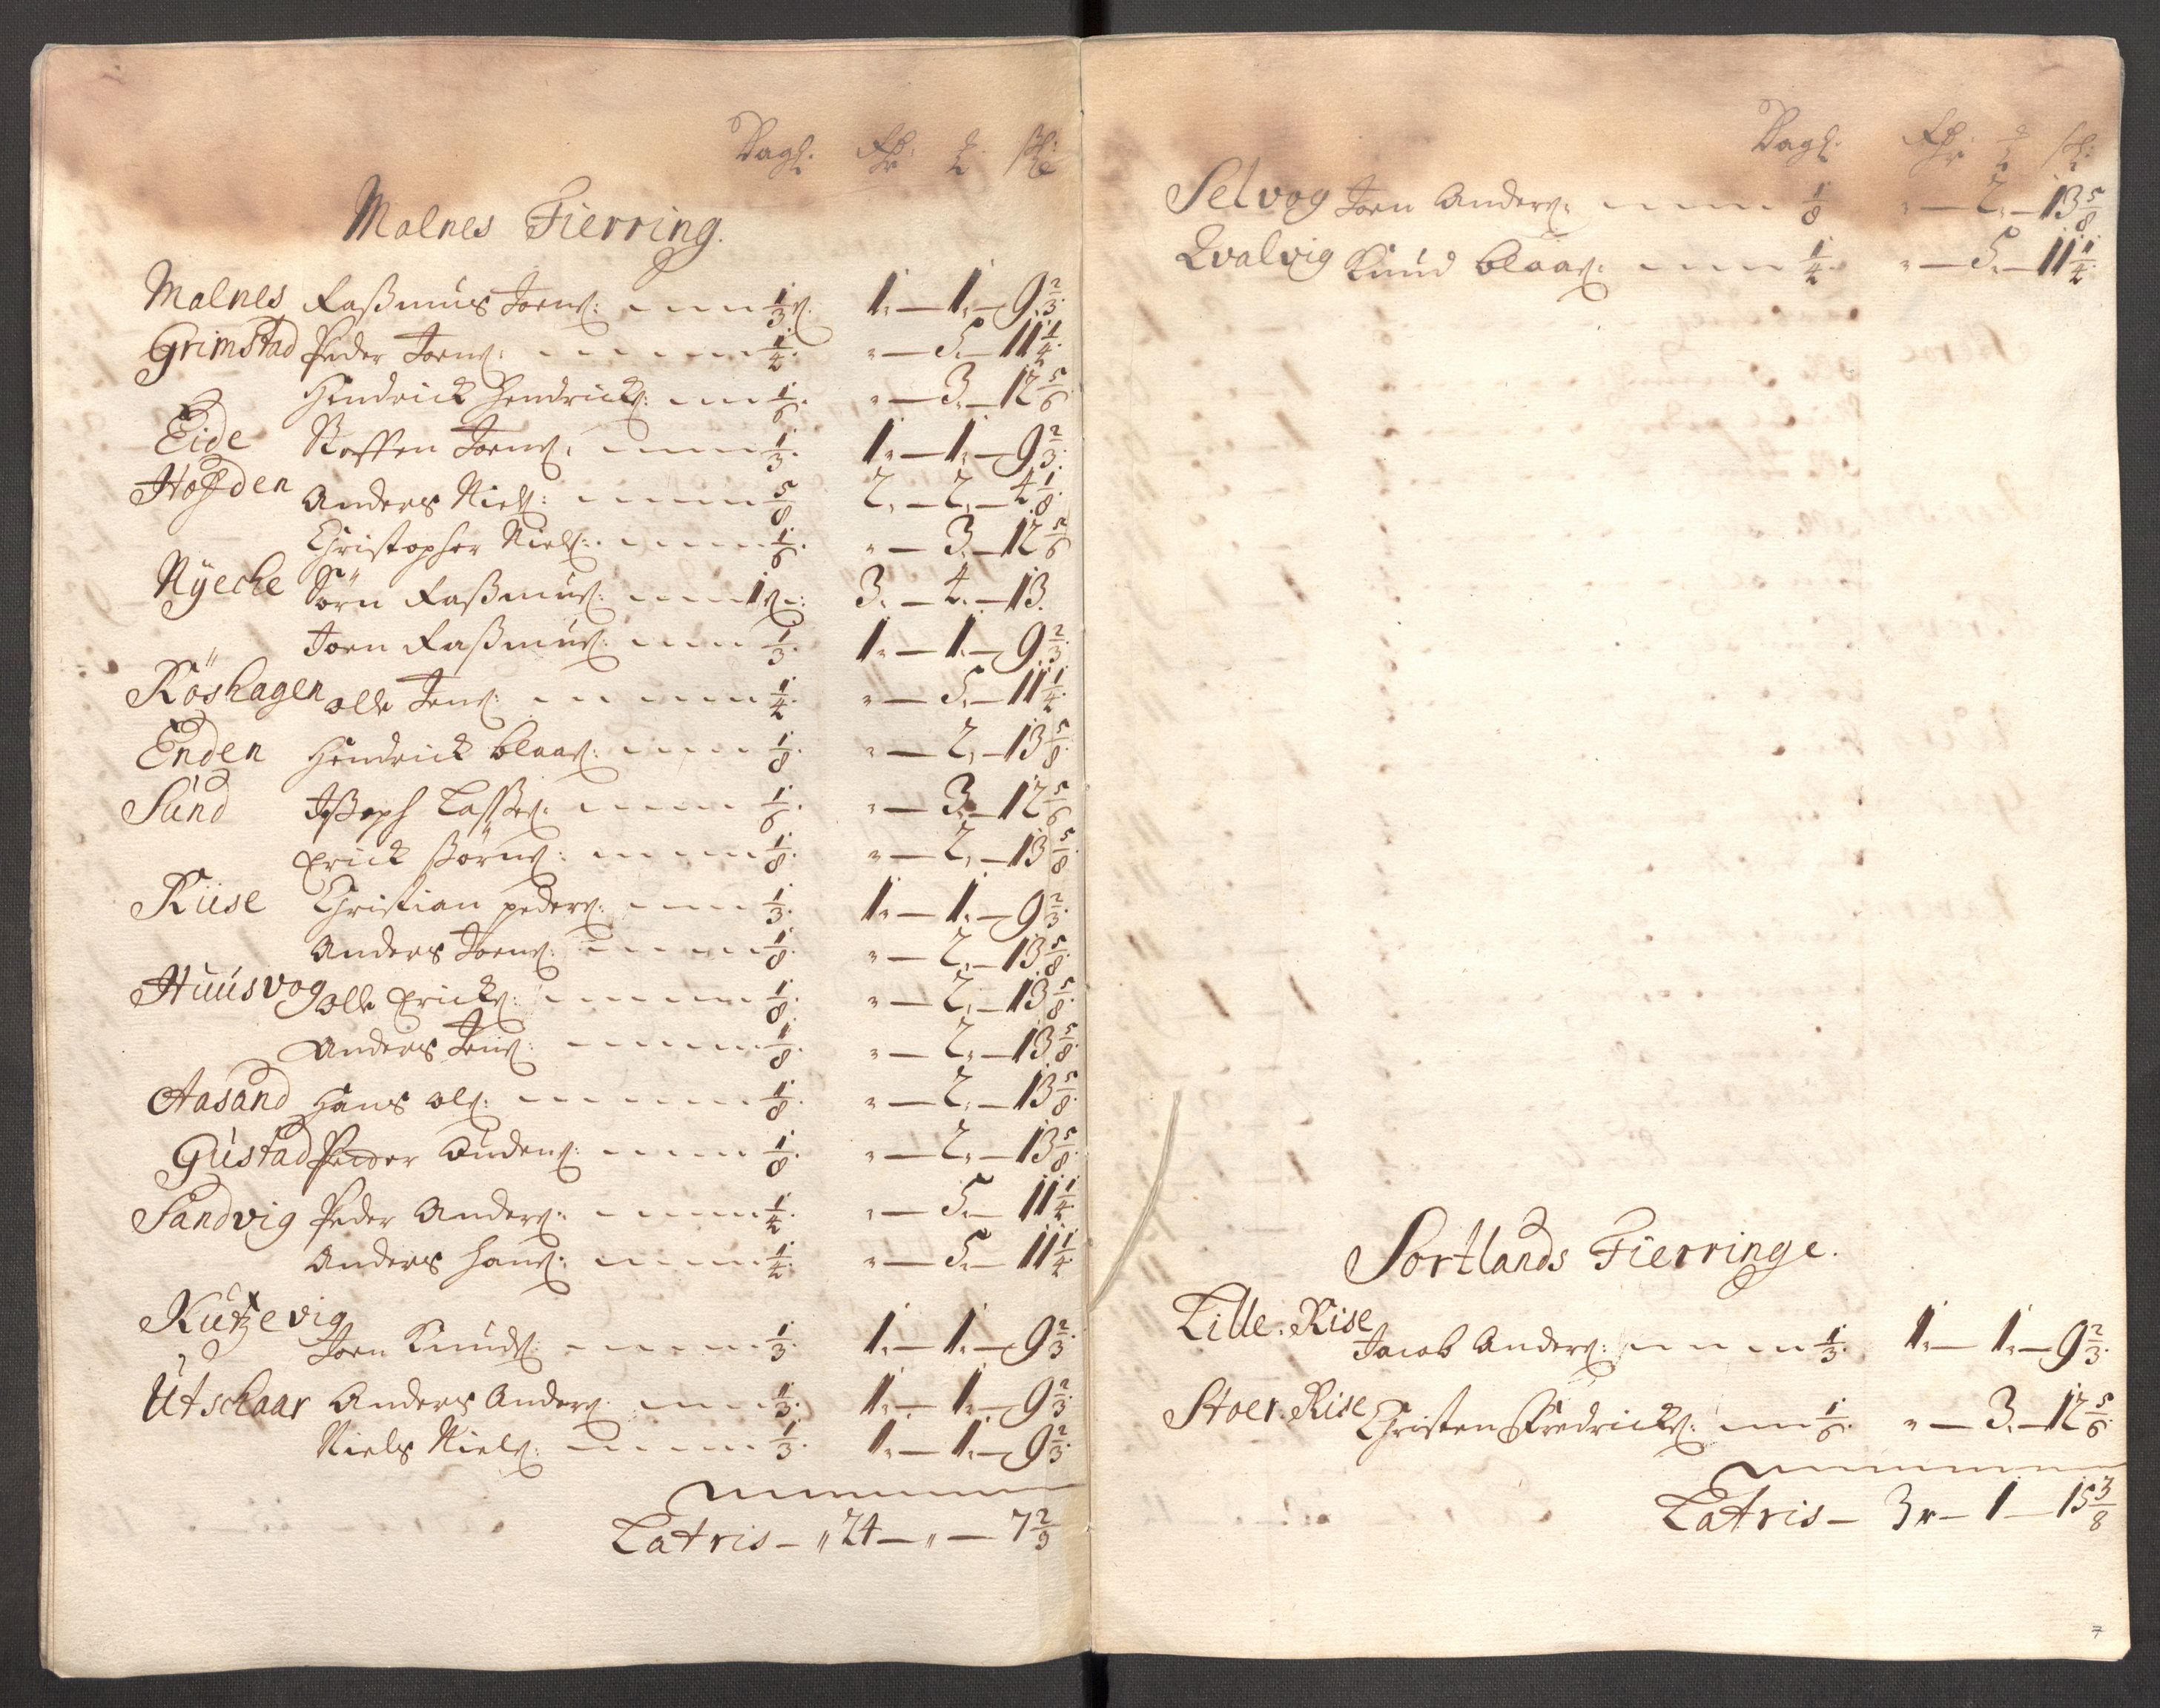 Vogℓ. Rdr: ℔ sk:
Malnes Fierring.
Malnes Raßmus Joens: 1/3 v. 1. — 1. — 9 2/3.
Grimstad Peder Joens: 1/4. " — 5. — 11 1/4.
Hendrick Hendricks: 1/6. " — 3. — 12 5/6
Eide Steffen Joens: 1/3. 1. — 1. — 9 2/3.
Hofden Anders Niels: 5/8 2. — 2. — 4 1/8.
Christopher Niels: 1/6. " — 3. — 12 5/6
Nÿeche Sörn Raßmus: 1 v: 3. — 4. — 13.
Joen Raßmus: 1/3. 1. — 1. — 9 2/3.
Röshagen olle Jens: 1/4. " — 5. — 11 1/4.
Enden Hendrick Claas: 1/8. " — 2. — 13 5/8.
Sund Joseph Lasses: 1/6. " — 3. — 12 5/6
Erick Sörns: 1/8. " — 2. — 13 5/8
Riise Christian peders: 1/3. 1. — 1. — 9 2/3.
Anders Joens: 1/8. " — 2. — 13 5/8.
Huusvog olle Ericks: 1/8. " — 2. — 13 5/8.
Anders Jens: 1/8. " — 2. — 13 5/8.
Aasand Hans ols: 1/8. " — 2. — 13 5/8.
Gustad Peder Audens: 1/8. " — 2. — 13 5/8.
Sandvig Peder Anders: 1/4. " — 5. — 11 1/4.
Anders Hans: 1/4. " — 5. — 11 1/4
Kutzevig
Joen Knuds: 1/3. 1. — 1. — 9 2/3.
Utschaar Anders Anders: 1/3. 1. — 1. — 9 2/3.
Niels Niels: 1/3. 1. — 1. — 9 2/3.
Latris — " 24 — " — 7 2/9
Vogℓ. Rdr: ℔ sk:
Selvog Joen Anders: 1/8 " — 2. — 13 5/8
Qvalvig Knud Claas: 1/4. " — 5. — 11 1/4.
Sortlands Fierringe.
Lille. Rise
Jacob Anders: 1/3. 1. — 1. — 9 2/3.
Stoer. Rise Christen Fredricks: 1/6. " — 3. — 12 5/6.
Latris — 3 r — 1 — 15 3/8
7